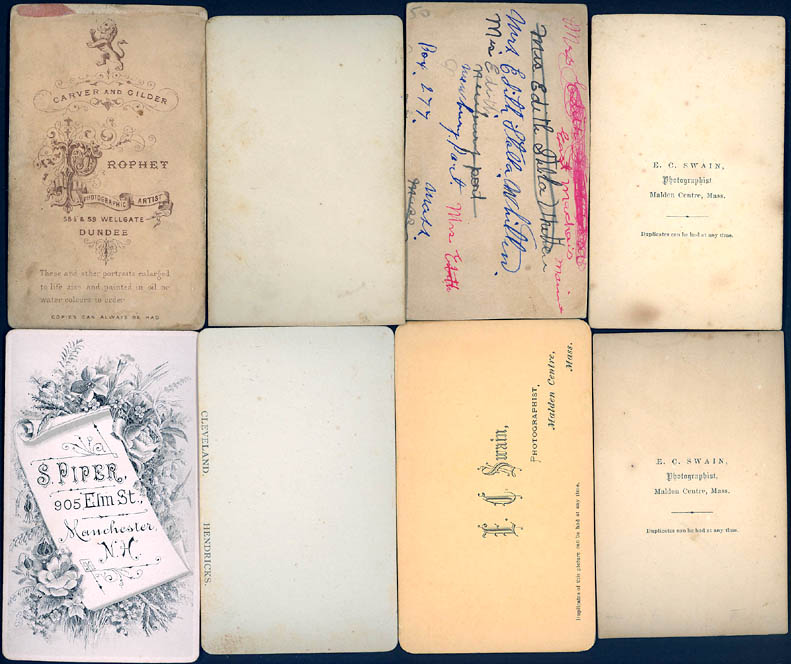 CARVER AND GILDER
PROPHET
PHOTOGRAPHIC ARTIST
58½ & 59 WELLGATE
DUNDEE
These and other portraits enlarged
to life size and painted in oil or
water colours to order
COPIES CAN ALWAYS BE HAD
50
Mrs
East Machais Maine
Mrs Edith Stella Whitten
Mrs Edith Stella Whitten.
Mrs Edith
Newburyport
Newburyport
Mrs Edith
Box. 277.
Mass.
E. C. SWAIN,
Photographist
Malden Centre, Mass.
Duplicates can be had at any time.
S. PIPER,
905 Elm St.
Manchester,
N.H.
CLEVELAND,
HENDRICKS.
E. C. Swain,
PHOTOGRAPHIST,
Malden Centre,
Mass.
Duplicates of this picture can be had at any time.
E. C. SWAIN,
Photographist,
Malden Centre, Mass.
Duplicates can be had at any time.